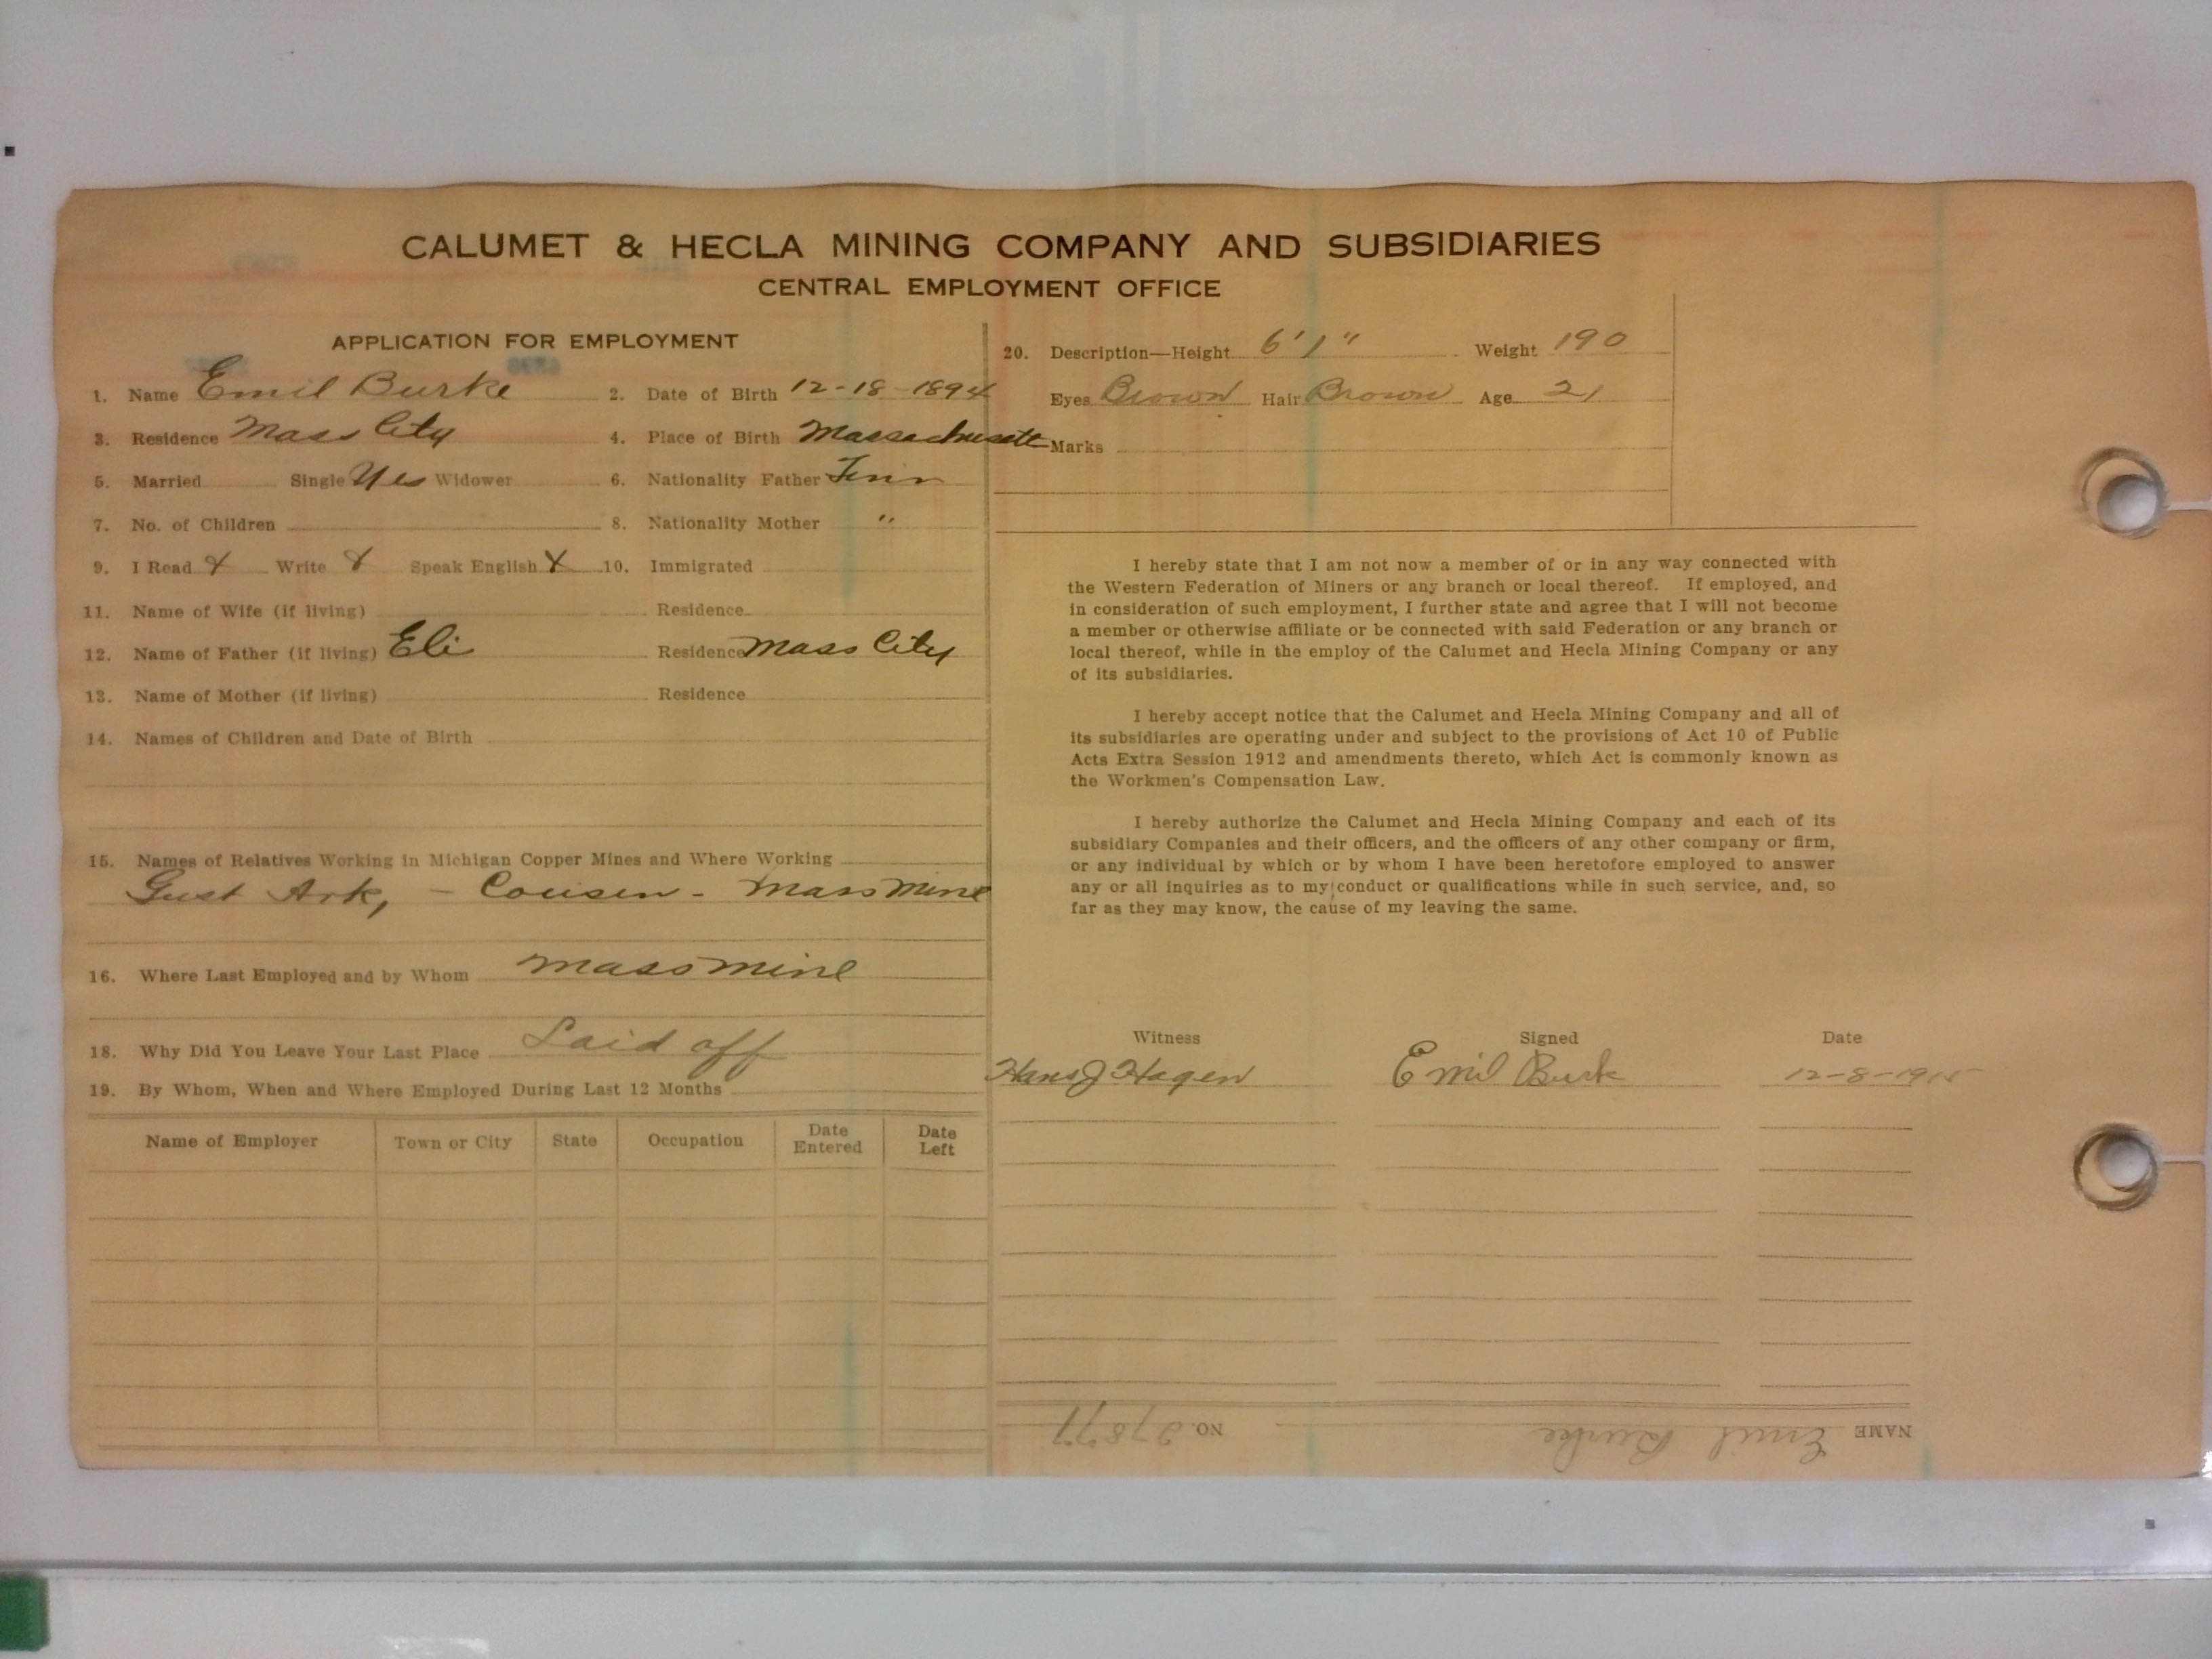 CALUMET & HECLA MINING COMPANY AND SUBSIDIARIES
CENTRAL EMPLOYMENT OFFICE
APPLICATION FOR EMPLOYMENT
1. Name Emil Burke 2. Date of Birth 12-18-1894
3. Residence Mass City 4. Place of Birth Massachusett
5. Married Single Yes Widower 6. Nationality Father Finn
7. No. of Children 8. Nationality Mother "
9. I Read X Write X Speak English X 10. Immigrated
11. Name of Wife (if living) Residence
12. Name of Father (if living) Eli Residence Mass City
13. Name of Mother (if living) Residence
14. Names of Children and Date of Birth
15. Names of Relatives Working in Michigan Copper Mines and Where Working
Gust Ark, - Cousin - Mass Mine
16. Where Last Employed and by Whom Mass Mine
18. Why Did You Leave Your Last Place Laid off
19. By Whom, When and Where Employed During Last 12 Months
Name of Employer Town or City State Occupation Date Entered Date Left
20. Description—Height 6'1" Weight 190
Eyes Brown Hair Brown Age 21
Marks
I hereby state that I am not now a member of or in any way connected with
the Western Federation of Miners or any branch or local thereof. If employed, and
in consideration of such employment, I further state and agree that I will not become
a member or otherwise affiliate or be connected with said Federation or any branch or
local thereof, while in the employ of the Calumet and Hecla Mining Company or any
of its subsidiaries.
I hereby accept notice that the Calumet and Hecla Mining Company and all of
its subsidiaries are operating under and subject to the provisions of Act 10 of Public
Acts Extra Session 1912 and amendments thereto, which Act is commonly known as
the Workmen's Compensation Law.
I hereby authorize the Calumet and Hecla Mining Company and each of its
subsidiary Companies and their officers, and the officers of any other company or firm,
or any individual by which or by whom I have been heretofore employed to answer
any or all inquiries as to my conduct or qualifications while in such service, and, so
far as they may know, the cause of my leaving the same.
Witness Signed Date
Hans J Hagen Emil Burk 12-8-1915
NAME Emil Burke NO. 27877